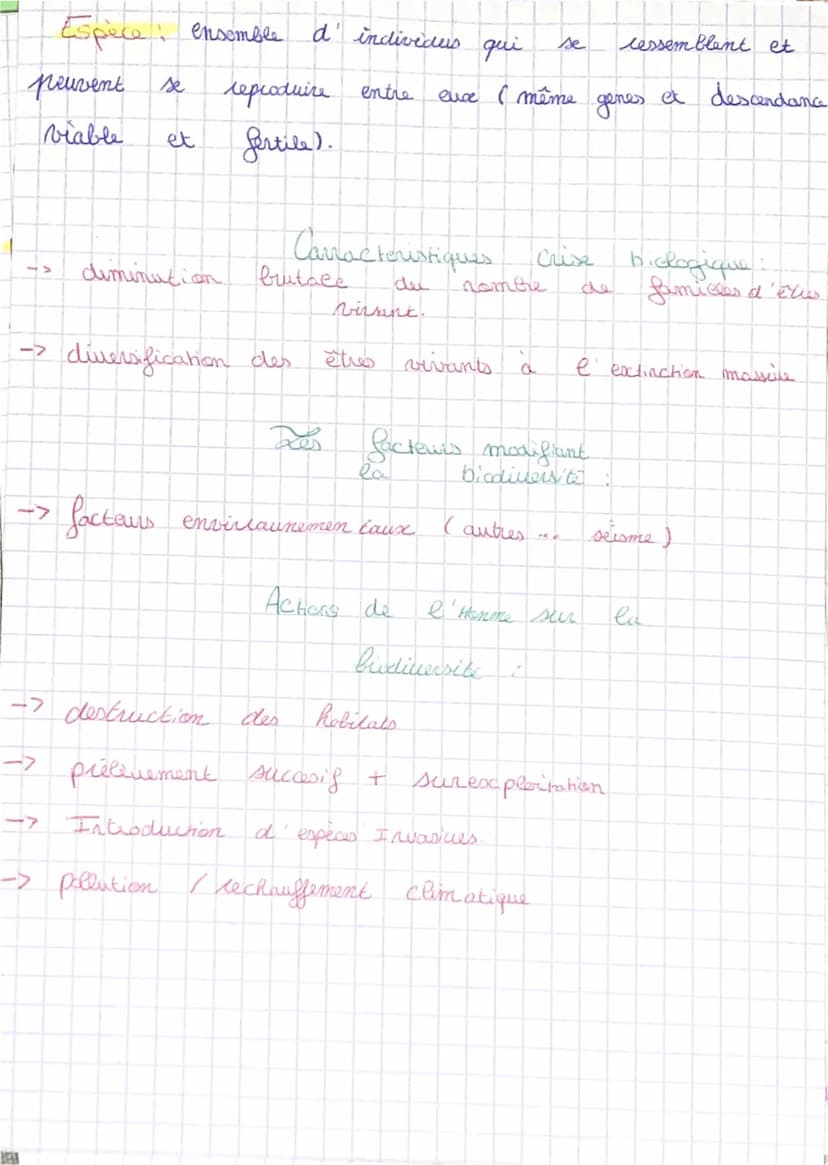 Espèce : ensemble d'individus qui se ressemblent et
peuvent se reproduire entre eux (même genes et descendanc
viable et fertile).
Carracteristiques Crise biologique :
-> diminution brutale du nombre de familles d'êtres
vivant.
-> diversification des êtres vivants à l'extinction massive
Les facteurs modifiant
la biodiversité :
-> facteurs envirraunementaux (autres ... séisme)
Actions de l'Homme sur la
biodiversite :
-> destruction des habitats
-> prélèvement sucessif + surexploitation
-> Introduction d'espèces Invasives
-> pollution / rechauffement climatique